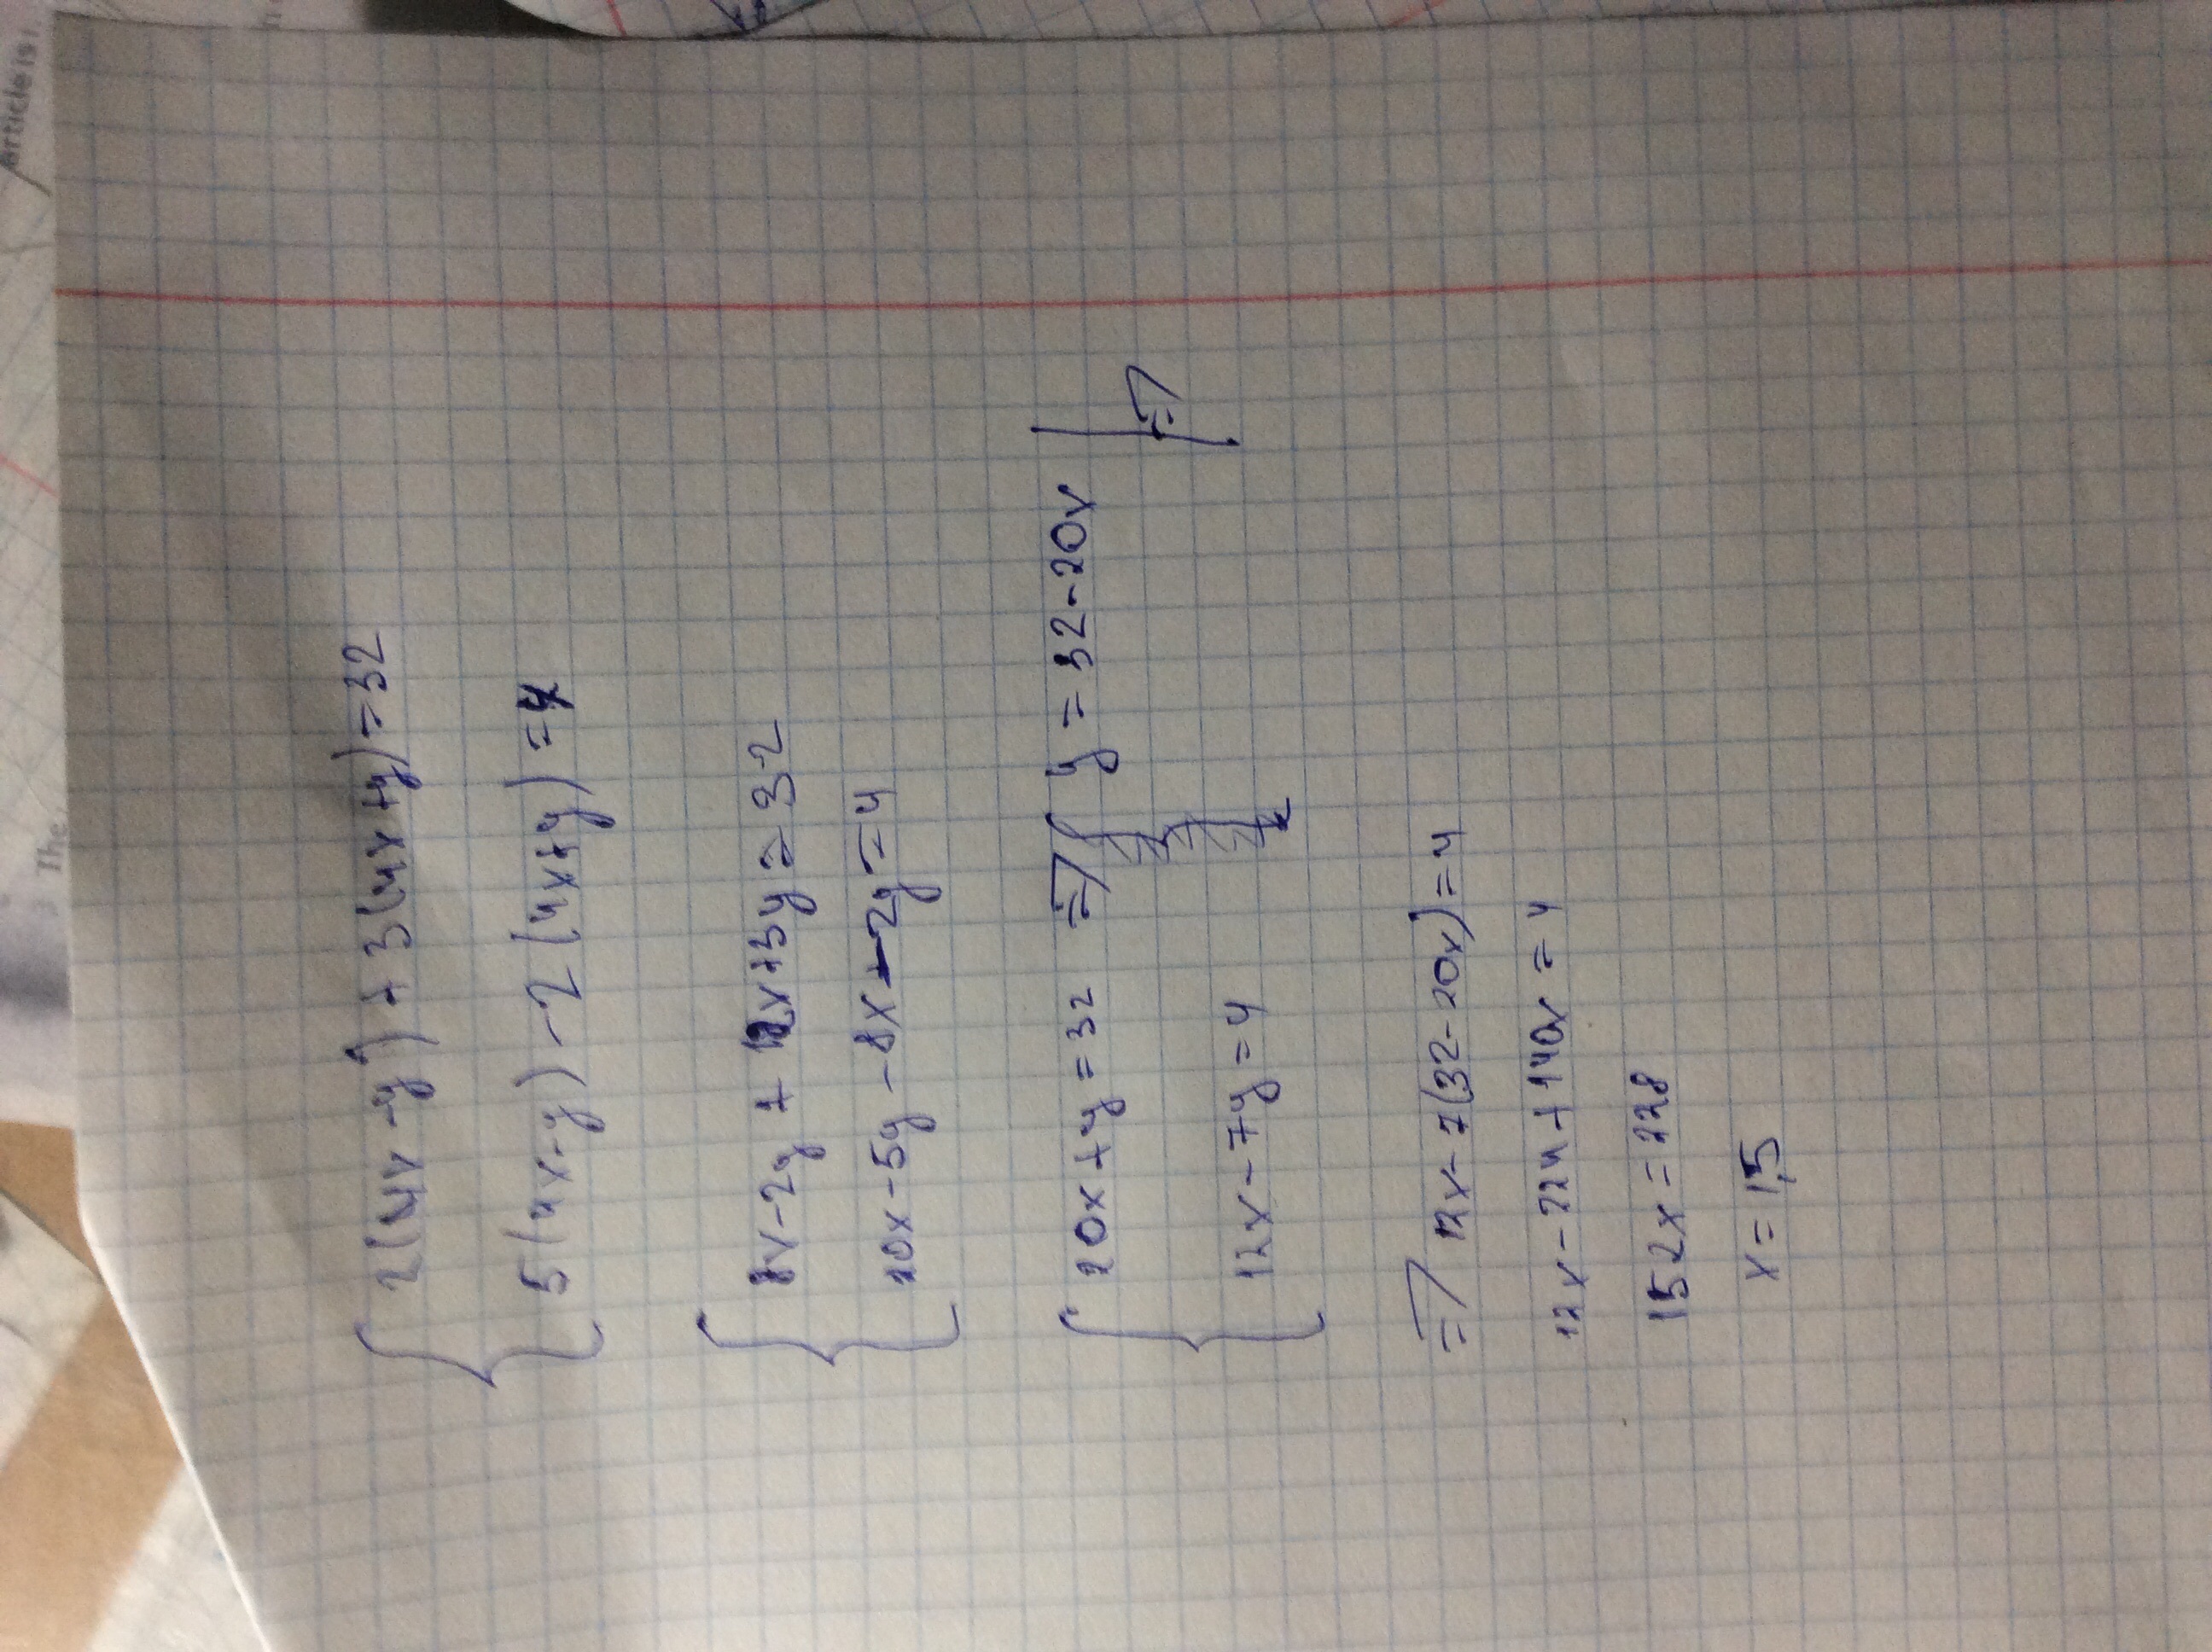 2(4x-y)+3(4x+y)=32
5(4x-y)-2(4x+y)=4
8x-2y+12x+3y=32
20x-5y-8x-2y=4
20x+y=32 => y=32-20x =>
12x-7y=4
=> 12x-7(32-20x)=4
12x-224+140x=4
152x=228
x=1,5
Article is
The